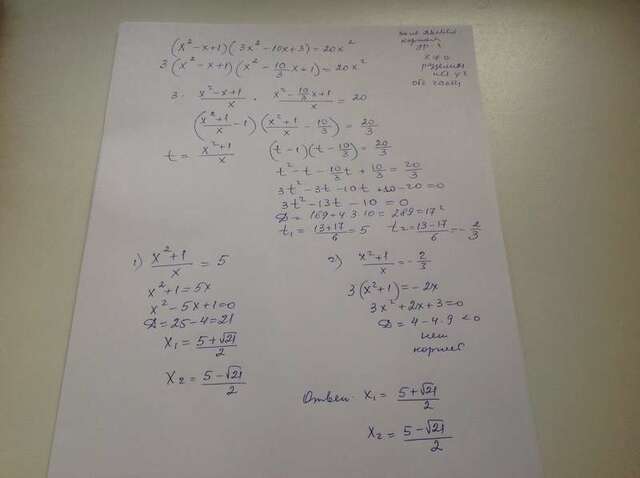 (x²-x+1)(3x²-10x+3)=20x²
3(x²-x+1)(x²-10/3 x+1)=20x²
корнем
ур.
x≠0
разделим
на x²
обе части
3 · (x²-x+1)/x · (x²-10/3 x+1)/x = 20
((x²+1)/x - 1)((x²+1)/x - 10/3) = 20/3
t = (x²+1)/x
(t-1)(t-10/3) = 20/3
t²-t-10/3 t+10/3 = 20/3
3t²-3t-10t+10-20=0
3t²-13t-10=0
D = 169+4·3·10 = 289=17²
t₁ = (13+17)/6 = 5 t₂ = (13-17)/6 = -2/3
1) (x²+1)/x = 5
x²+1=5x
x²-5x+1=0
D=25-4=21
x₁ = (5+√21)/2
x₂ = (5-√21)/2
2) (x²+1)/x = -2/3
3(x²+1)=-2x
3x²+2x+3=0
D = 4-4·9 <0
нет
корней
Ответ. x₁ = (5+√21)/2
x₂ = (5-√21)/2